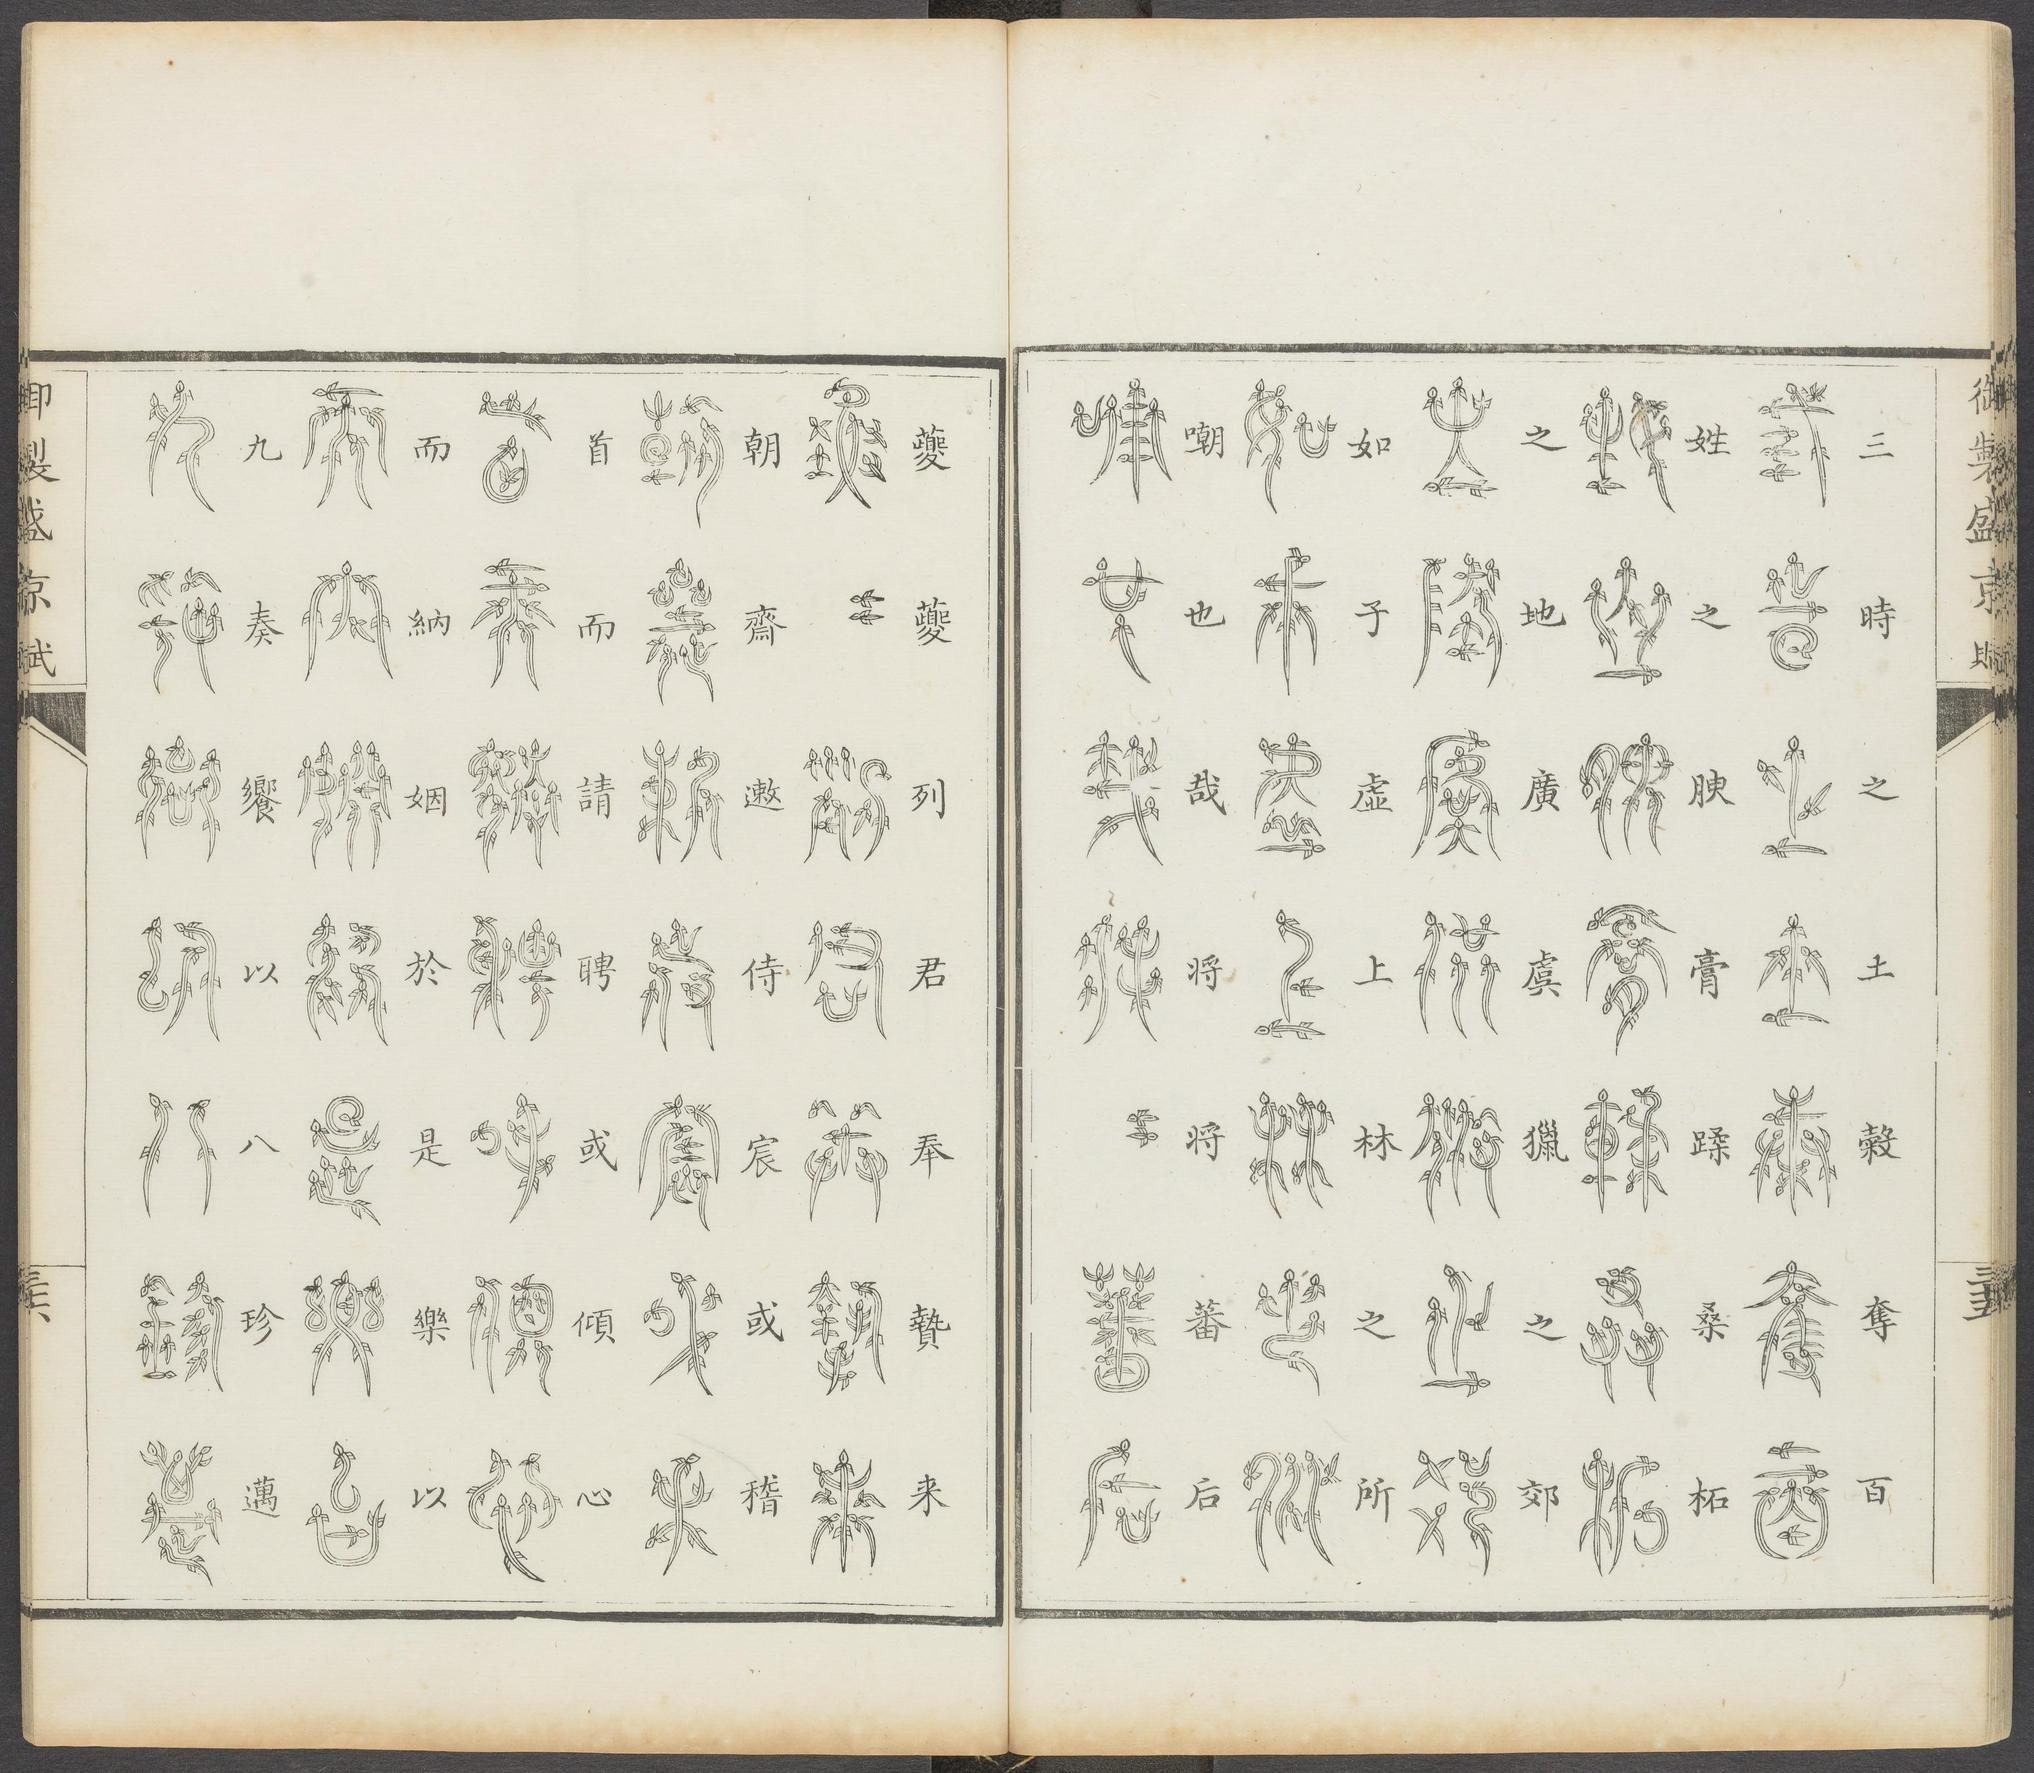 御製盛京賦
三時之土穀奪百
姓之腴膏蹂桑柘
之地廣虞獵之郊
如子虛上林之所
嘲也哉將將蕃后
三十五
夔夔列君奉贄来
朝齋遫侍宸或稽
首而請聘或傾心
而納姻於是樂以
九奏饗以八珍邁
御製盛京賦
三十六